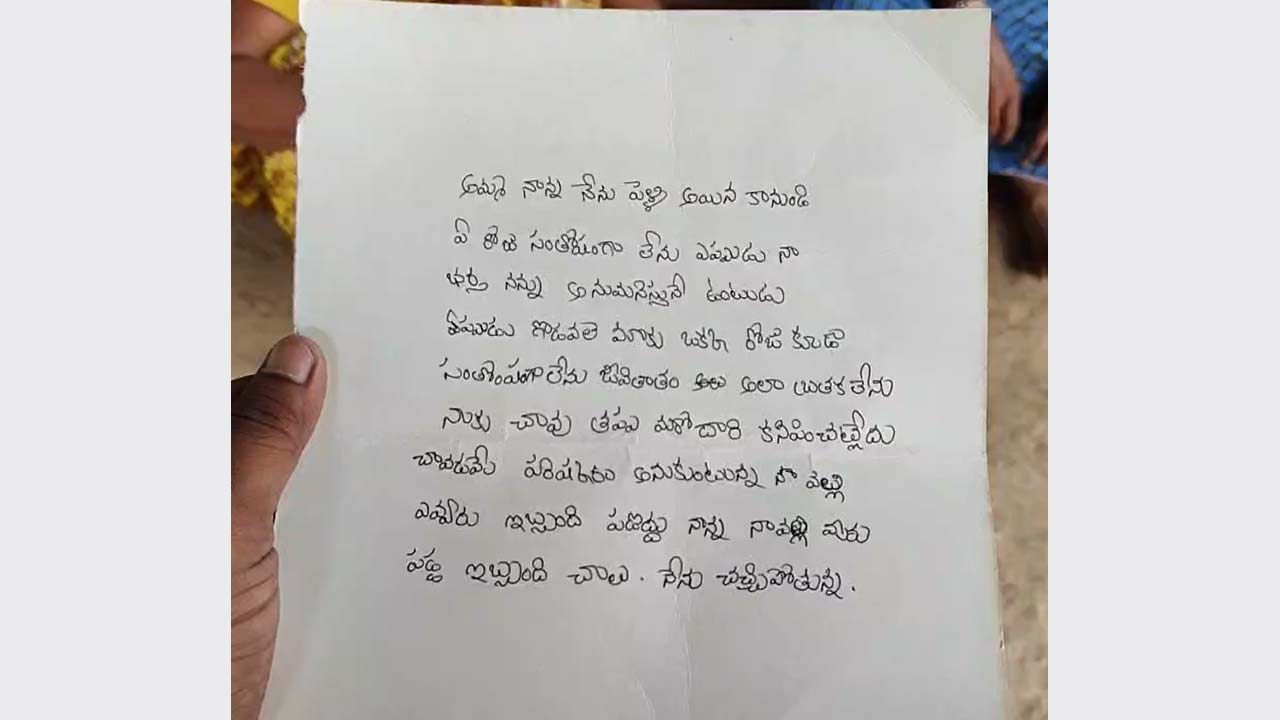 అమ్మ నాన్న నేను పెళ్ళి అయిన కానుండి
ఏ రోజు సంతోషంగా లేను ఎప్పుడు నా
భర్త నన్ను అనుమనిస్తునే ఉంటుడు
ఎప్పుడు గొడవలె మాకు ఒకరి రోజు కూడా
సంతోషంగాలేను జీవితాతం అలా బ్రతకలేను
నాకు చావు తప్పు మరోదారి కనిపించట్లేదు
చావడమే పరిష్కరం అనుకుంటున్న నా వల్ల
ఎవ్వరు ఇబ్బంది పడొద్దు నాన్న నావల్ల మీరు
పడ్డ ఇబ్బంది చాలు. నేను చచ్చిపోతున్న.